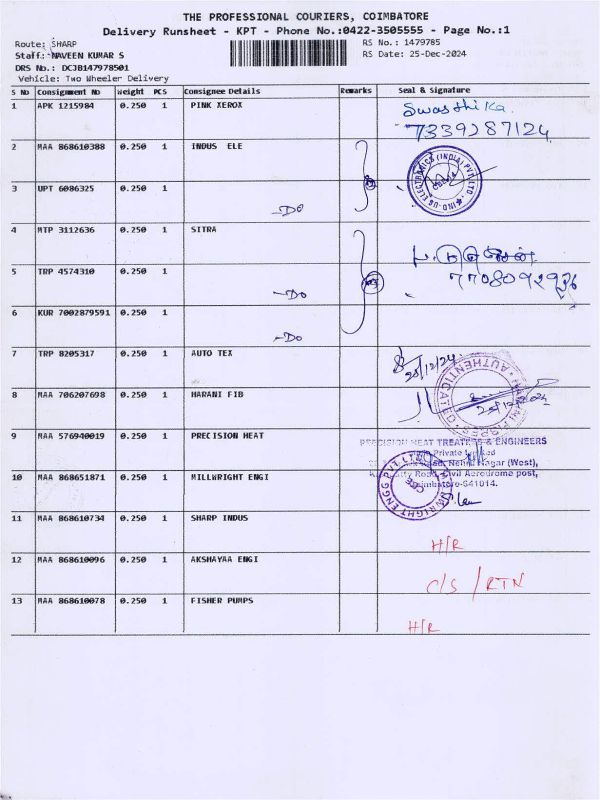 THE PROFESSIONAL COURIERS, COIMBATORE
Delivery Runsheet - KPT - Phone No.:0422-3505555 - Page No.:1
Route: SHARP
RS No.: 1479785
Staff: NAVEEN KUMAR S
RS Date: 25-Dec-2024
DRS No.: DCJB147978501
Vehicle: Two Wheeler Delivery
S No Consignment No Weight PCS Consignee Details Remarks Seal & Signature
1 APK 1215984 0.250 1 PINK XEROX Swasthika.
7339287124
2 MAA 868610388 0.250 1 INDUS ELE
IND-US ELECTRONICS (INDIA) PVT. LTD
3 UPT 6086325 0.250 1
-DO
4 MTP 3112636 0.250 1 SITRA
5 TRP 4574310 0.250 1
-DO
6 KUR 7002879591 0.250 1
-DO
7 TRP 8205317 0.250 1 AUTO TEX
25/12/24
AUTHENTICATED
8 MAA 706207698 0.250 1 HARANI FIB
9 MAA 576940019 0.250 1 PRECISION HEAT
PRECISION HEAT TREATERS & ENGINEERS
Private Limited
Road, Nehru Nagar (West),
Road, Civil Aerodrome post,
Coimbatore-641014.
10 MAA 868651871 0.250 1 MILLWRIGHT ENGI
11 MAA 868610734 0.250 1 SHARP INDUS
H/R
12 MAA 868610096 0.250 1 AKSHAYAA ENGI
C/S / RTN
13 MAA 868610078 0.250 1 FISHER PUMPS
H/R